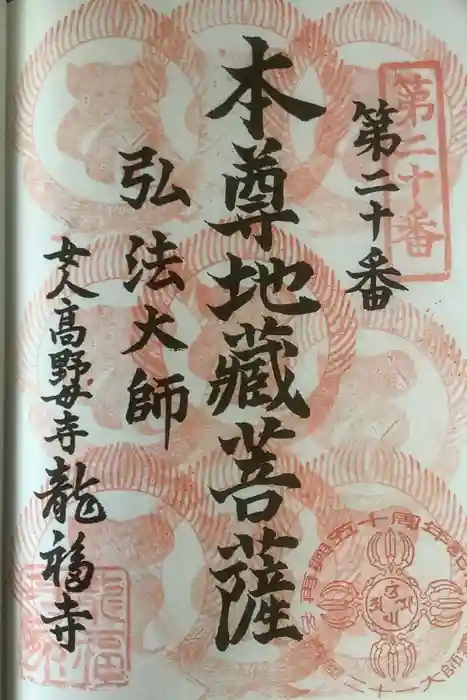 第二十番
第二十番
本尊地藏菩薩
弘法大師
女人高野母寺龍福寺
再興五十周年